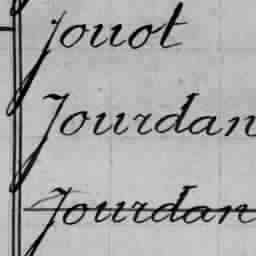 Jouot
Jourdan
Jourdan